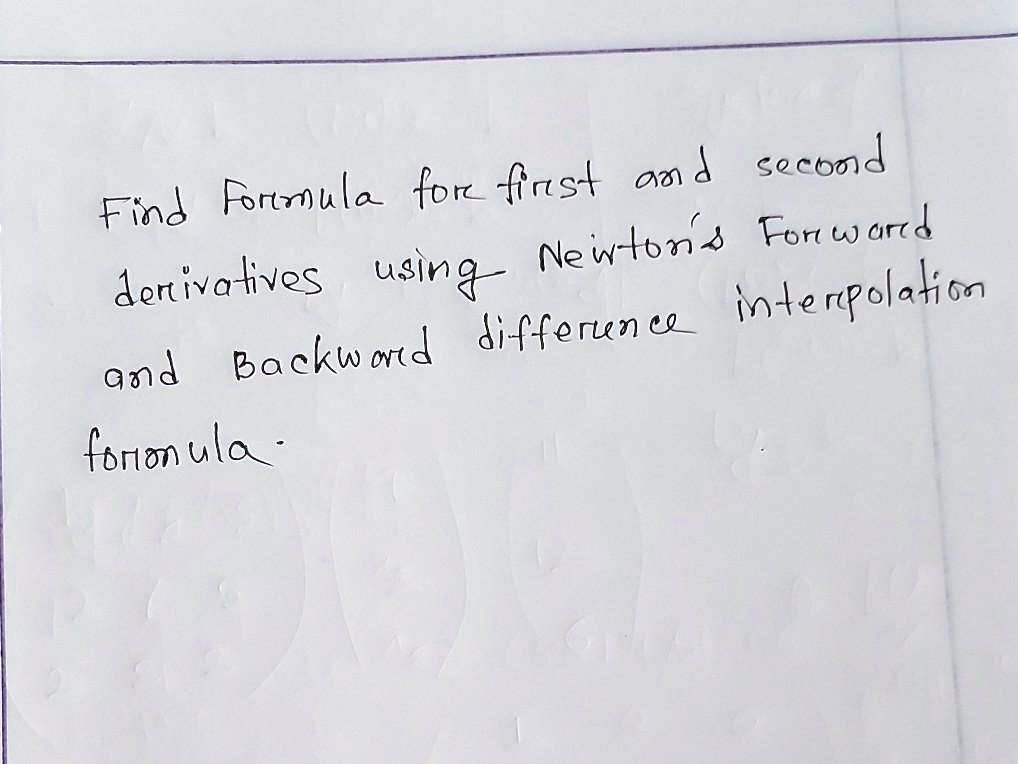 Find Formula for first and second
derivatives using Newton's Forward
and Backward difference interpolation
formula.